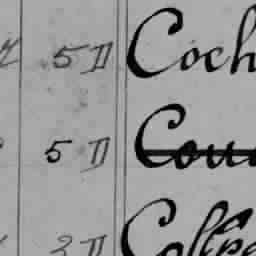 5 II Coch
5 II Cou
3 II Coltra